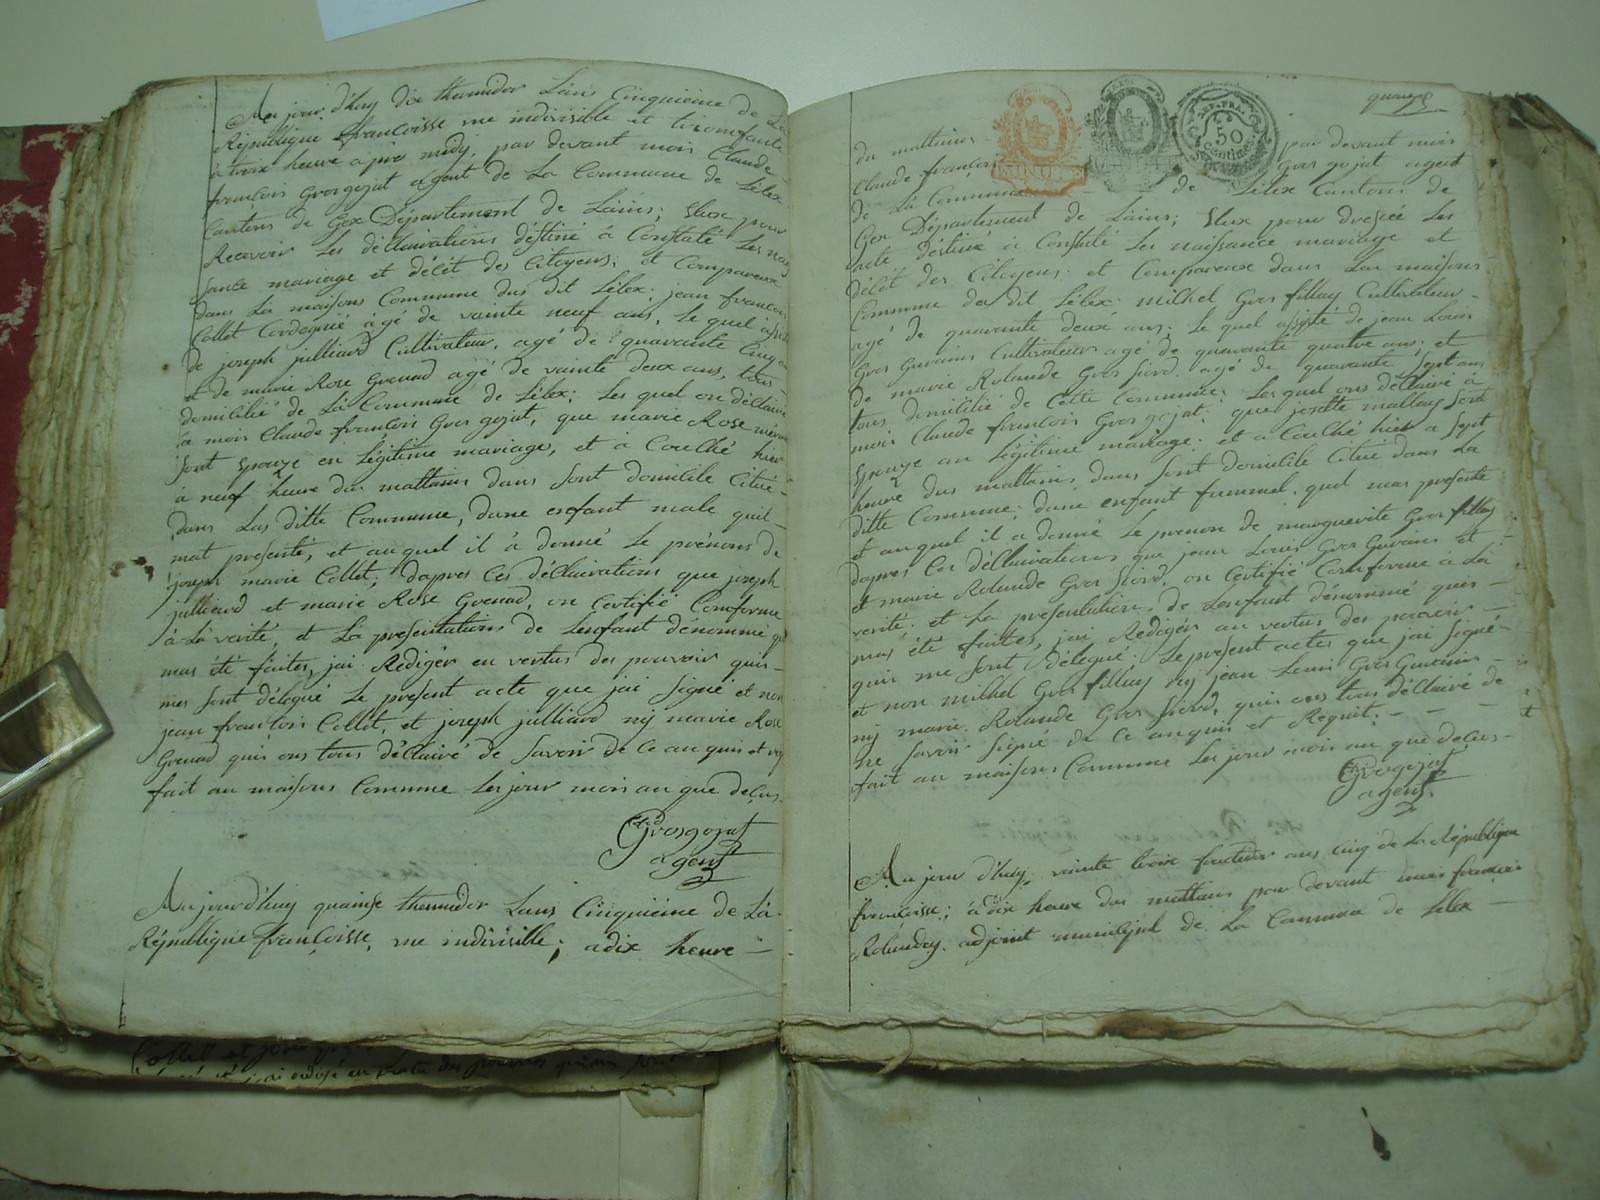 Au jour d'huy dix thermidor Lains Cinquieme de La
République francoisse une indivisible et triomfante
à troix heure apre midy, par devant mois Claude
francois Grosgojat agent de La Commune de Lélex
Cantons de Gex Département de Lains; Elux pour
Recevoir Les déclluirations déstiné à Constaté Les nais
sance mariage et délét des Citoyens; et Compareux
dans La maisons Commune dus dit Lélex; jean francois
Collet Cordognié àgé de vainte neuf ans, Le quel assisté
de joseph julliard Cultivateur, agé de quarante Cinq an
et de marie Rose Grenad agé de vainte deux ans, tous
domicilié de La Commune de Lélex; Les quel on déllairé
a mois Claude francois Gros gojat, que marie Rose
sont Epouze en Légitime mariage, et a Couché hier
à neuf heure dus mattains dans sont domicile Citué
dans Lus ditte Commune, dune enfant male quil
mat presenté, et auquel il à donné Le prénons de
joseph marie Collet; dapres Ces déllairations que joseph
julliard et marie Rose Grenad, on Certifié Comforme
à La verité, et La presentations de Lenfant dénommé qu
mas été faites, jai Redigér en vertus des pouvoir quis
mes sont délegué Le present acte que jai Signé et non
jean francois Collet, et joseph julliard ny marie Rose
Grenad quis ons tous déllairé de savoir de Ce an quis et
fait au maisons Commune Les jour mois an que deçus.
Grosgojat
agent
Au jour d'huy quainse thermidor Lains Cinquiéme de La
République francoisse, une indivisible; a dix heure
quinze
MINUTE
REP. FRA.
50
Centimes
du mattins par devant mois
Claude françois Gros gojat agent
de La Commune de Lélex Cantons de
Gex Département de Lains; Elux pour dressée Les
acte déstiné à Constaté Les naissance mariage et
délét des Citoyens; et Compareux dans La maisons
Commune dus dit Lélex: milhel Gros fillay Cultivateur
agé de quarante deux ans: Le quel assisté de jean Louis
Gros Gurains Cultivateur agé de quarante quatre ans; et
de marie Rolande Gros fiord agé de quarante Sept ans
tous domicilié de Cette Commune: Les quel ons déllairé à
mois Claude francois Gros gojat: que josette mathay sont
Epouze an Légitime mariage: et a Couché hier a Sept
heure dus mattains dans sont domicile Citué dans La
ditte Commune; dune enfant fummel, quil mas presenté
et auquel il a donné Le prenon de marguerite Gros fillay
dapres Ces déllairations que jean Louis Gros Gurains et
et marie Rolande Gros fiord, on Certifié Comforme à La
verité: et La presentations de Lenfant dénommé quis
mas été faites, jai Redigér an vertus des pouvoir
quis me sont délegué: Le present actes que jai Signé
et non milhel Gros fillay ny jean Louis Gros Gurains
ny marie Rolande Gros fiord, quis ons tous déllairé de
ne savoir Signé de Ce anquis et Requit:
fait au maisons Commune Les jour mois an que deçus
Grosgojat
agent
Au jour d'huy vainte troix fructidor ans cinq de La République
françoisse; à dix heure dus mattains par devant mois françois
Rolandez, adjoint municipal de La Commune de Lélex